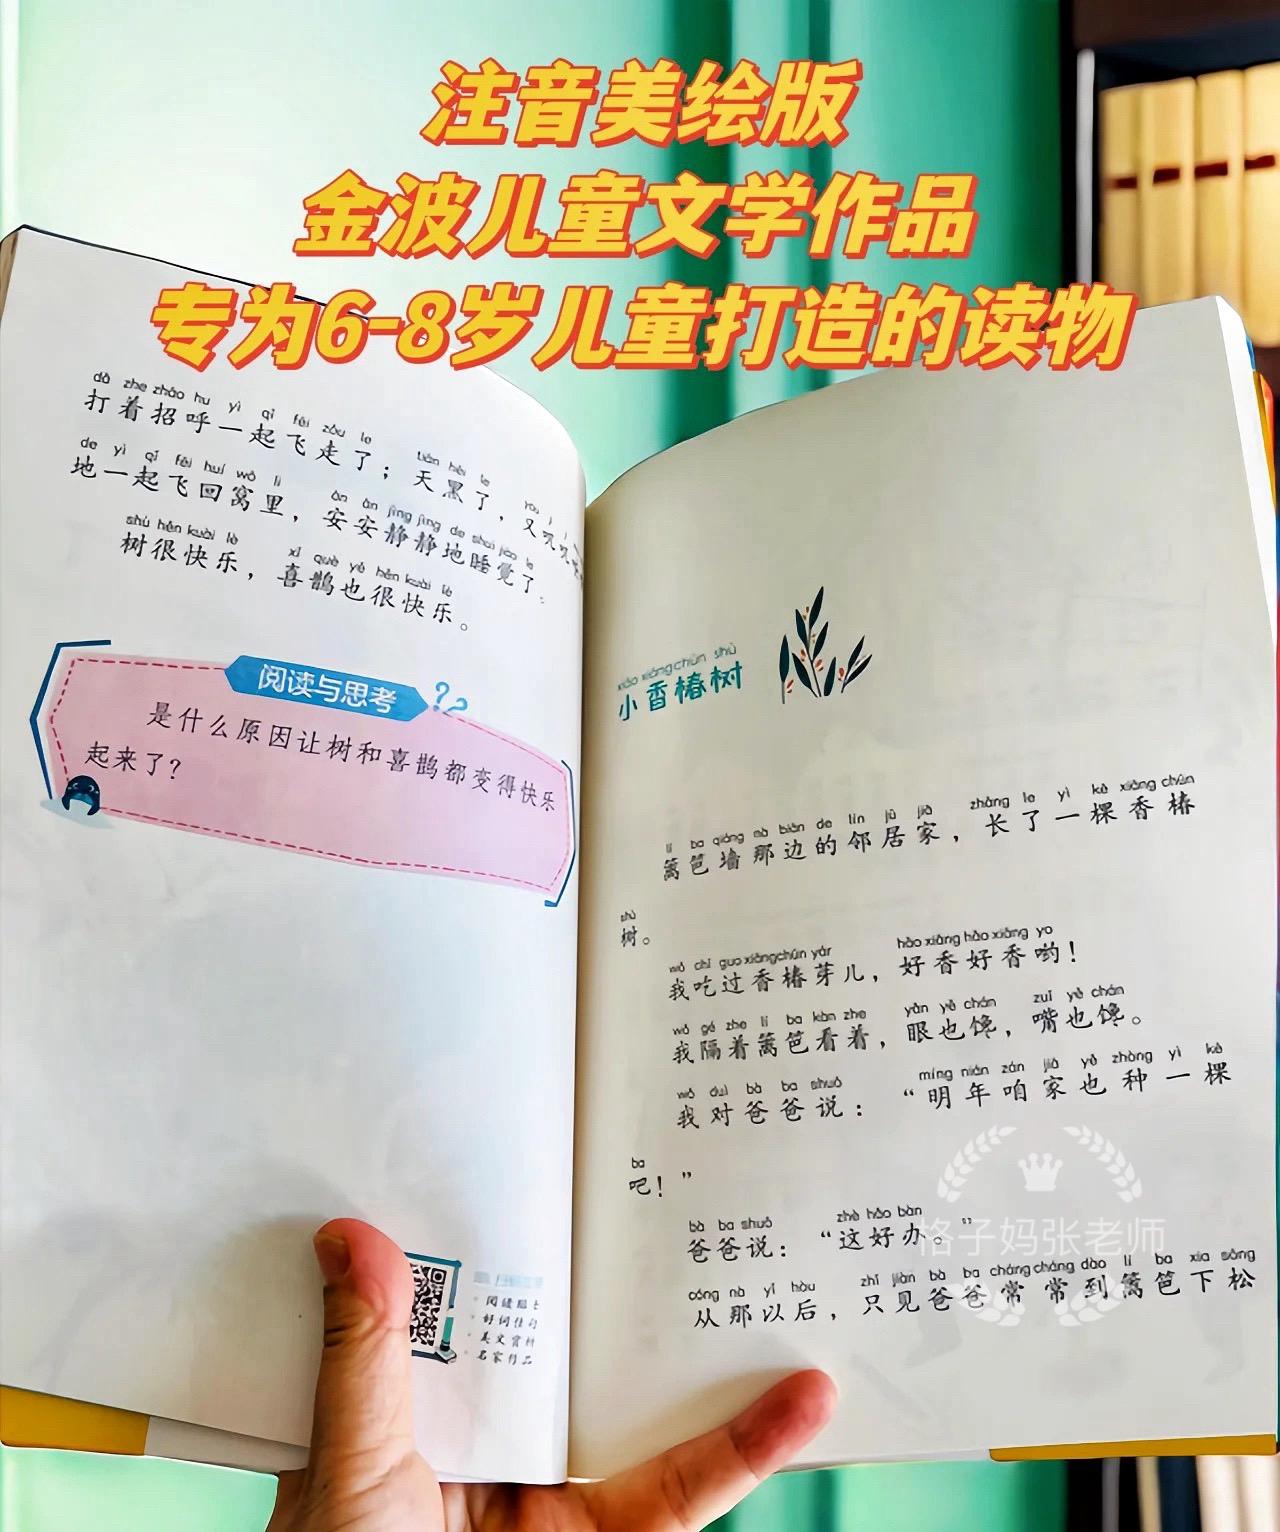 注音美绘版
金波儿童文学作品
专为6-8岁儿童打造的读物
dǎ zhe zhāo hu yì qǐ fēi zǒu le tiān hēi le yòu
打着招呼一起飞走了；天黑了，又叽叽
de yì qǐ fēi huí wō li ān ān jìng jìng de shuì jiào le
地一起飞回窝里，安安静静地睡觉了。
shù hěn kuài lè xǐ què yě hěn kuài lè
树很快乐，喜鹊也很快乐。
阅读与思考
是什么原因让树和喜鹊都变得快乐
起来了？
阅读贴士
好词佳句
美文赏析
名家作品
xiǎo xiāng chūn shù
小香椿树
lí ba qiáng nà biān de lín jū jiā zhǎng le yì kē xiāng chūn
篱笆墙那边的邻居家，长了一棵香椿
shù
树。
wǒ chī guo xiāng chūn yár hǎo xiāng hǎo xiāng yo
我吃过香椿芽儿，好香好香哟！
wǒ gé zhe lí ba kàn zhe yǎn yě chán zuǐ yě chán
我隔着篱笆看着，眼也馋，嘴也馋。
wǒ duì bà ba shuō míng nián zán jiā yě zhòng yì kē
我对爸爸说：“明年咱家也种一棵
ba
吧！”
bà ba shuō zhè hǎo bàn
爸爸说：“这好办。”
cóng nà yǐ hòu zhǐ jiàn bà ba cháng cháng dào lí ba xia sōng
从那以后，只见爸爸常常到篱笆下松
格子妈张老师